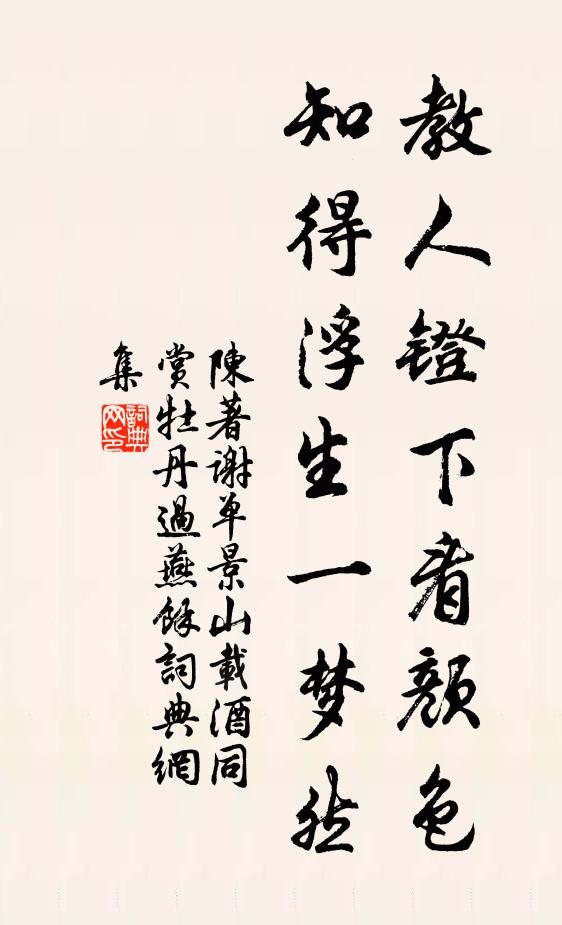 教人镫下看颜色
知得浮生一梦然
陳著谢单景山載酒同
賞牡丹過燕餘詞典網
集
詞典
网印